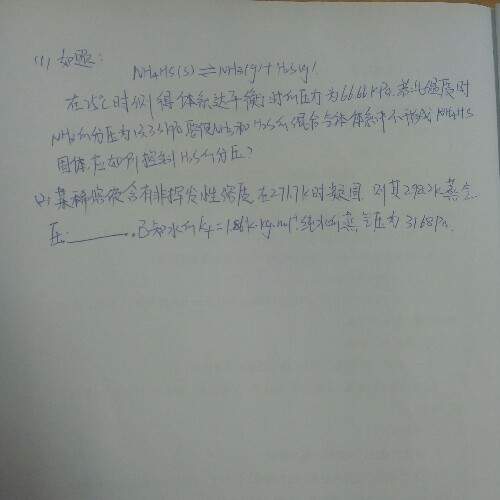 (1) 如题:
NH4HS(s) ⇌ NH3(g) + H2S(g)
在25℃时测得体系达平衡时的压力为66.66kPa.若此温度时
NH3的分压为 要使NH3和H2S的混合气体体系中不形成NH4HS
固体,应如何控制H2S的分压?
(2) 某稀溶液含有非挥发性溶质 在271.7K时凝固 则其298.2K蒸气
压______. 已知水的Kf=1.86K·kg·mol⁻¹.纯水的蒸气压为3168Pa.